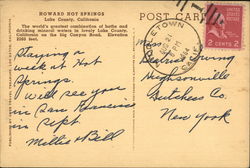 HOWARD HOT SPRINGS
Lake County, California
The world's greatest combination of baths and
drinking mineral waters in lovely Lake County,
California on the Big Canyon Road. Elevation
2205 feet.
POST CARD
Staying a
week at Hot
Springs.
Will see you
in San Francisco
in Sept
Millie & Bill
Hughsonville
Dutchess Co.
New York
2 CENTS 2